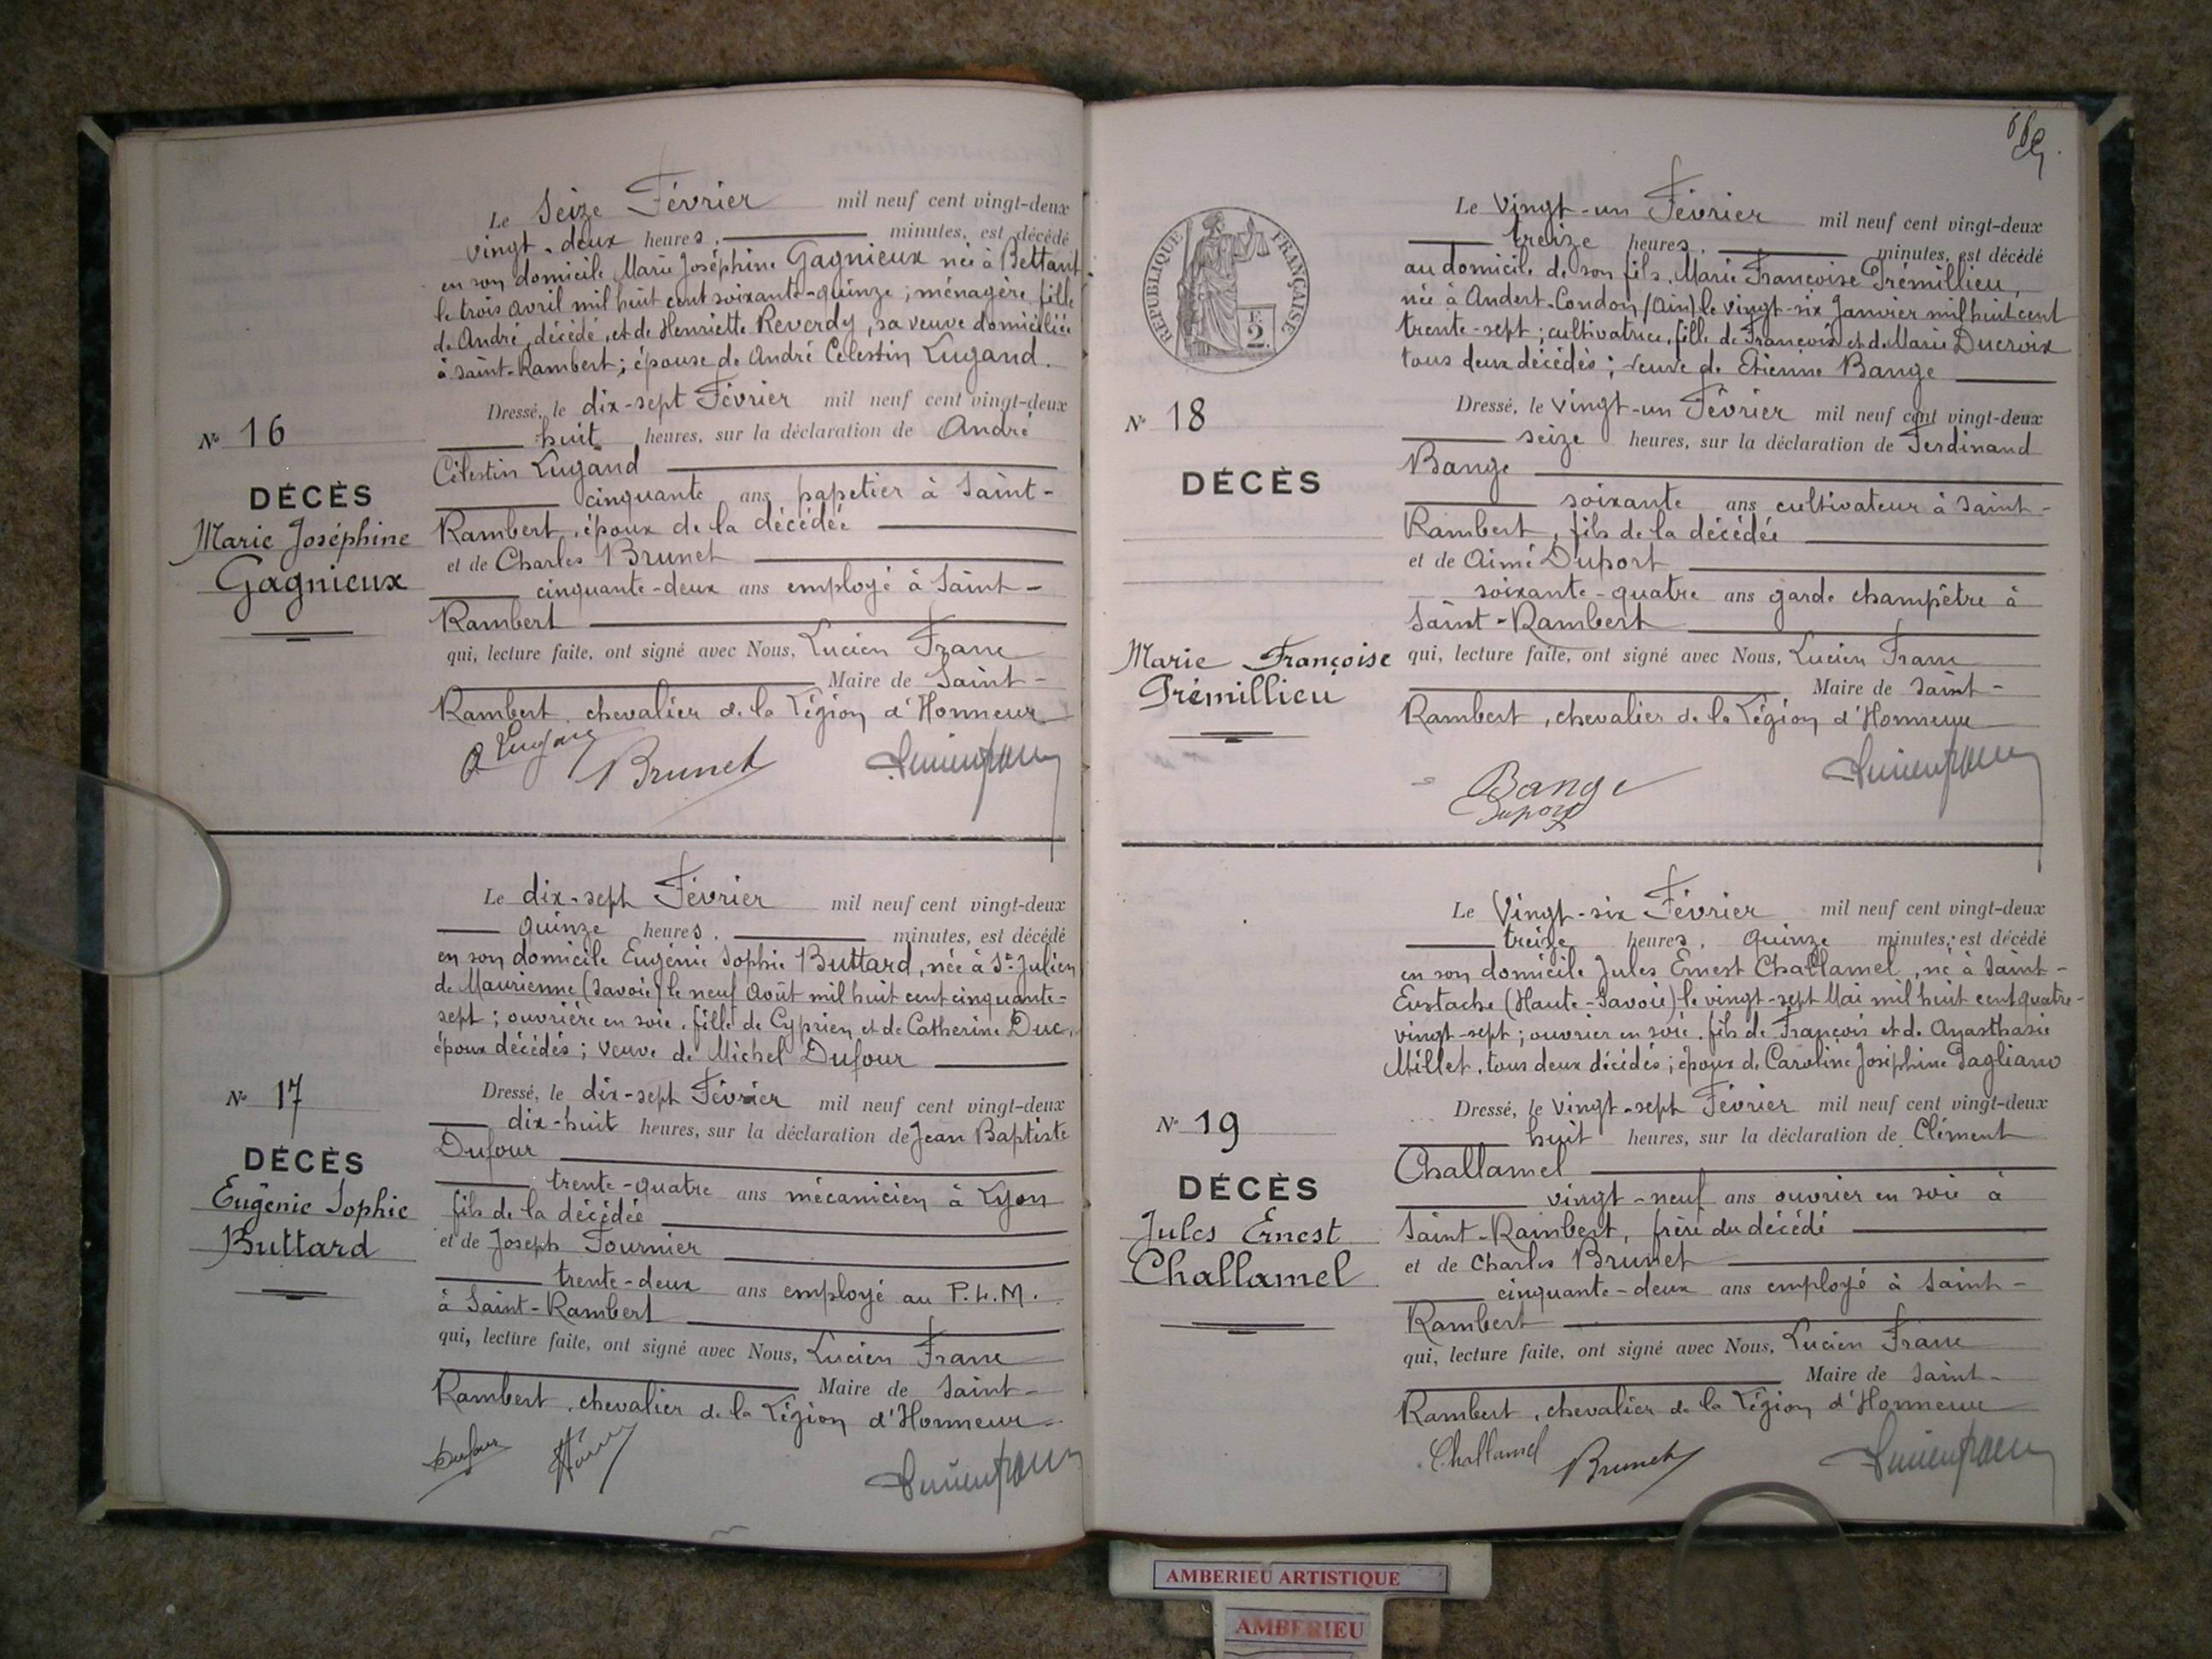 Le Seize Février mil neuf cent vingt-deux
vingt-deux heures, minutes, est décédé
en son domicile Marie Joséphine Gagnieux née à Bettant
le trois avril mil huit cent soixante-quinze ; ménagère, fille
de André, décédé, et de Henriette Reverdy, sa veuve domiciliée
à Saint-Rambert ; épouse de André Célestin Lugand.
Dressé, le dix-sept Février mil neuf cent vingt-deux
huit heures, sur la déclaration de André
Célestin Lugand
cinquante ans papetier à Saint-
Rambert, époux de la décédée
et de Charles Brunet
cinquante-deux ans employé à Saint-
Rambert
qui, lecture faite, ont signé avec Nous, Lucien Franc
Maire de Saint-
Rambert, chevalier de la Légion d'Honneur
Brunet
No 16
DÉCÈS
Marie Joséphine
Gagnieux
Le dix-sept Février mil neuf cent vingt-deux
quinze heures, minutes, est décédé
en son domicile Eugénie Sophie Buttard, née à St-Julien
de Maurienne (Savoie) le neuf Août mil huit cent cinquante-
sept ; ouvrière en soie, fille de Cyprien et de Catherine Duc,
époux décédés ; veuve de Michel Dufour
Dressé, le dix-sept Février mil neuf cent vingt-deux
dix-huit heures, sur la déclaration de Jean Baptiste
Dufour
trente-quatre ans mécanicien à Lyon
fils de la décédée
et de Joseph Fournier
trente-deux ans employé au P.L.M.
à Saint-Rambert
qui, lecture faite, ont signé avec Nous, Lucien Franc
Maire de Saint-
Rambert, chevalier de la Légion d'Honneur
Dufour
No 17
DÉCÈS
Eugénie Sophie
Buttard
RÉPUBLIQUE FRANÇAISE
F.
2.
Le Vingt-un Février mil neuf cent vingt-deux
treize heures, minutes, est décédé
au domicile de son fils, Marie Françoise Trémillieu,
née à Andert-Condon (Ain) le vingt-six Janvier mil huit cent
trente-sept ; cultivatrice, fille de François et de Marie Ducroix
tous deux décédés ; veuve de Etienne Bange
Dressé, le vingt-un Février mil neuf cent vingt-deux
seize heures, sur la déclaration de Ferdinand
Bange
soixante ans cultivateur à Saint-
Rambert, fils de la décédée
et de Aimé Duport
soixante-quatre ans garde champêtre à
Saint-Rambert
qui, lecture faite, ont signé avec Nous, Lucien Franc
Maire de Saint-
Rambert, chevalier de la Légion d'Honneur
Bange
Duport
No 18
DÉCÈS
Marie Françoise
Trémillieu
Le Vingt-six Février mil neuf cent vingt-deux
treize heures, quinze minutes, est décédé
en son domicile Jules Ernest Challamel, né à Saint-
Eustache (Haute-Savoie) le vingt-sept Mai mil huit cent quatre-
vingt-sept ; ouvrier en soie, fils de François et de Anasthasie
Millet, tous deux décédés ; époux de Caroline Joséphine Pagliano
Dressé, le vingt-sept Février mil neuf cent vingt-deux
huit heures, sur la déclaration de Clément
Challamel
vingt-neuf ans ouvrier en soie à
Saint-Rambert, frère du décédé
et de Charles Brunet
cinquante-deux ans employé à Saint-
Rambert
qui, lecture faite, ont signé avec Nous, Lucien Franc
Maire de Saint-
Rambert, chevalier de la Légion d'Honneur
Challamel Brunet
No 19
DÉCÈS
Jules Ernest
Challamel
AMBERIEU ARTISTIQUE
AMBERIEU